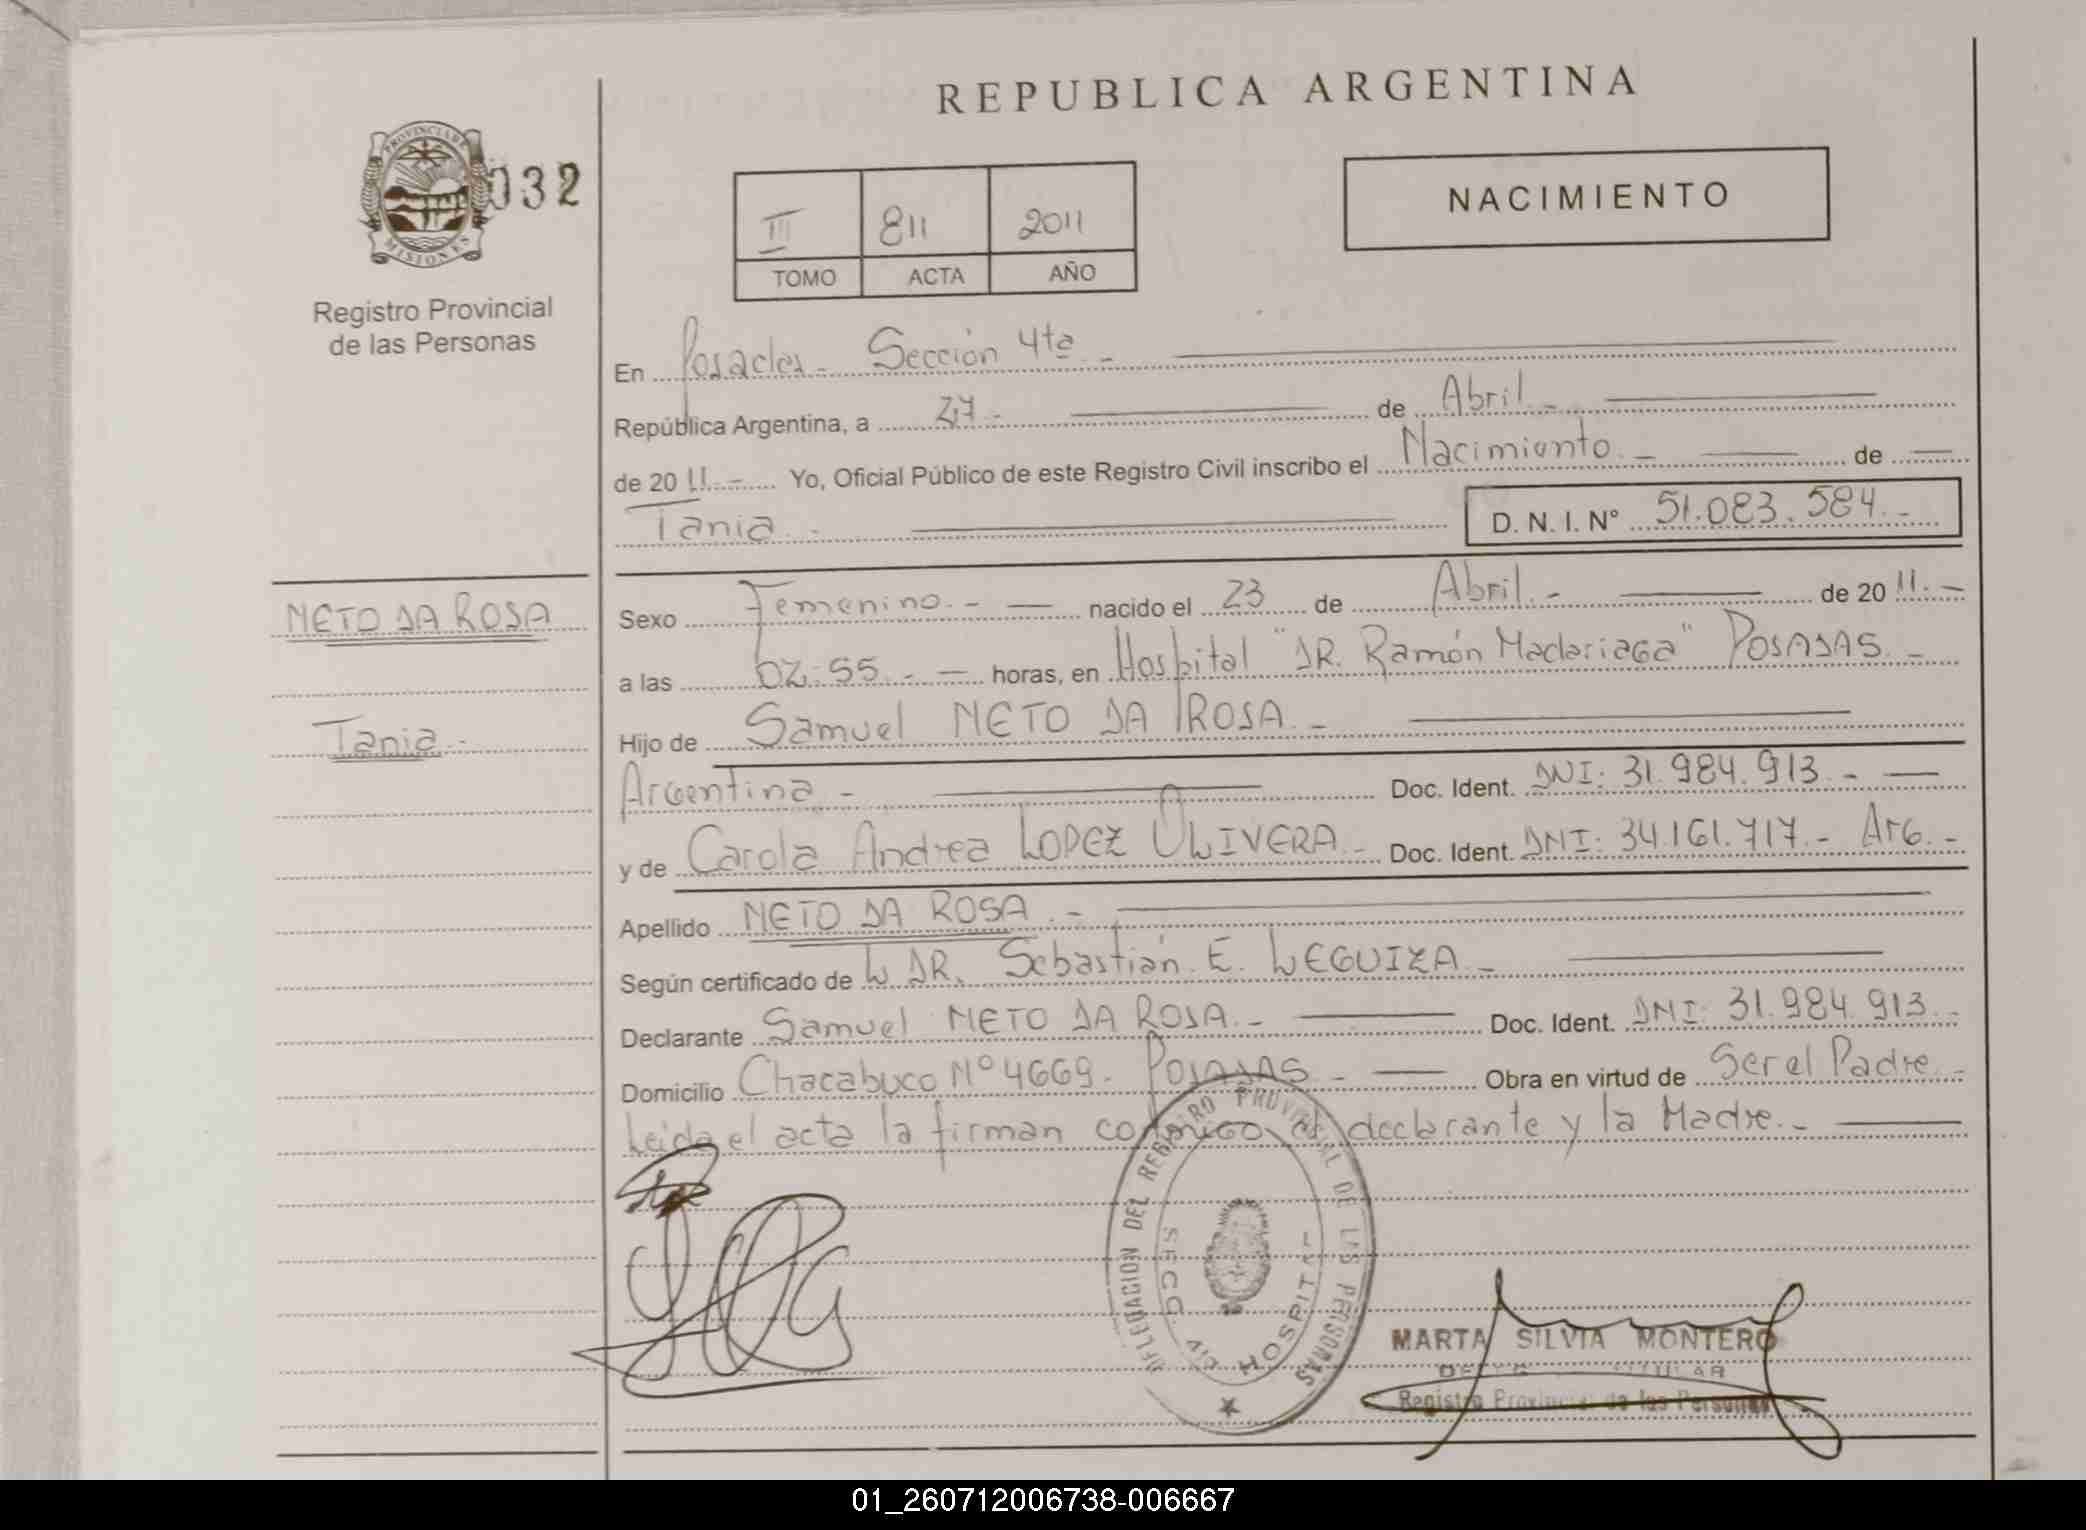 REPUBLICA ARGENTINA
PROVINCIA DE
MISIONES
032
Registro Provincial
de las Personas
III 811 2011
TOMO ACTA AÑO
NACIMIENTO
En Posadas - Sección 4ta -
República Argentina, a 27 - de Abril -
de 20 11 - Yo, Oficial Público de este Registro Civil inscribo el Nacimiento - de
Tania - D. N. I. N° 51.083.584 -
NETO DA ROSA
Tania -
Sexo Femenino - nacido el 23 de Abril - de 20 11 -
a las 02:55 - horas, en Hospital "DR. Ramón Madariaga" POSADAS -
Hijo de Samuel NETO DA ROSA -
Argentina - Doc. Ident. DNI: 31.984.913 -
y de Carola Andrea LOPEZ OLIVERA - Doc. Ident. DNI: 34.161.717 - Arg. -
Apellido NETO DA ROSA -
Según certificado de L DR. Sebastián E. LEGUIZA -
Declarante Samuel NETO DA ROSA - Doc. Ident. DNI: 31.984.913 -
Domicilio Chacabuco N° 4669 - POSADAS - Obra en virtud de Ser el Padre -
Leida el acta la firman conmigo, el declarante y la Madre. -
DELEGACION DEL REGISTRO PROVINCIAL DE LAS PERSONAS
SECC. HOSPITAL
MARTA SILVIA MONTERO
TITULAR
Registro Provincial de las Personas
01_260712006738-006667